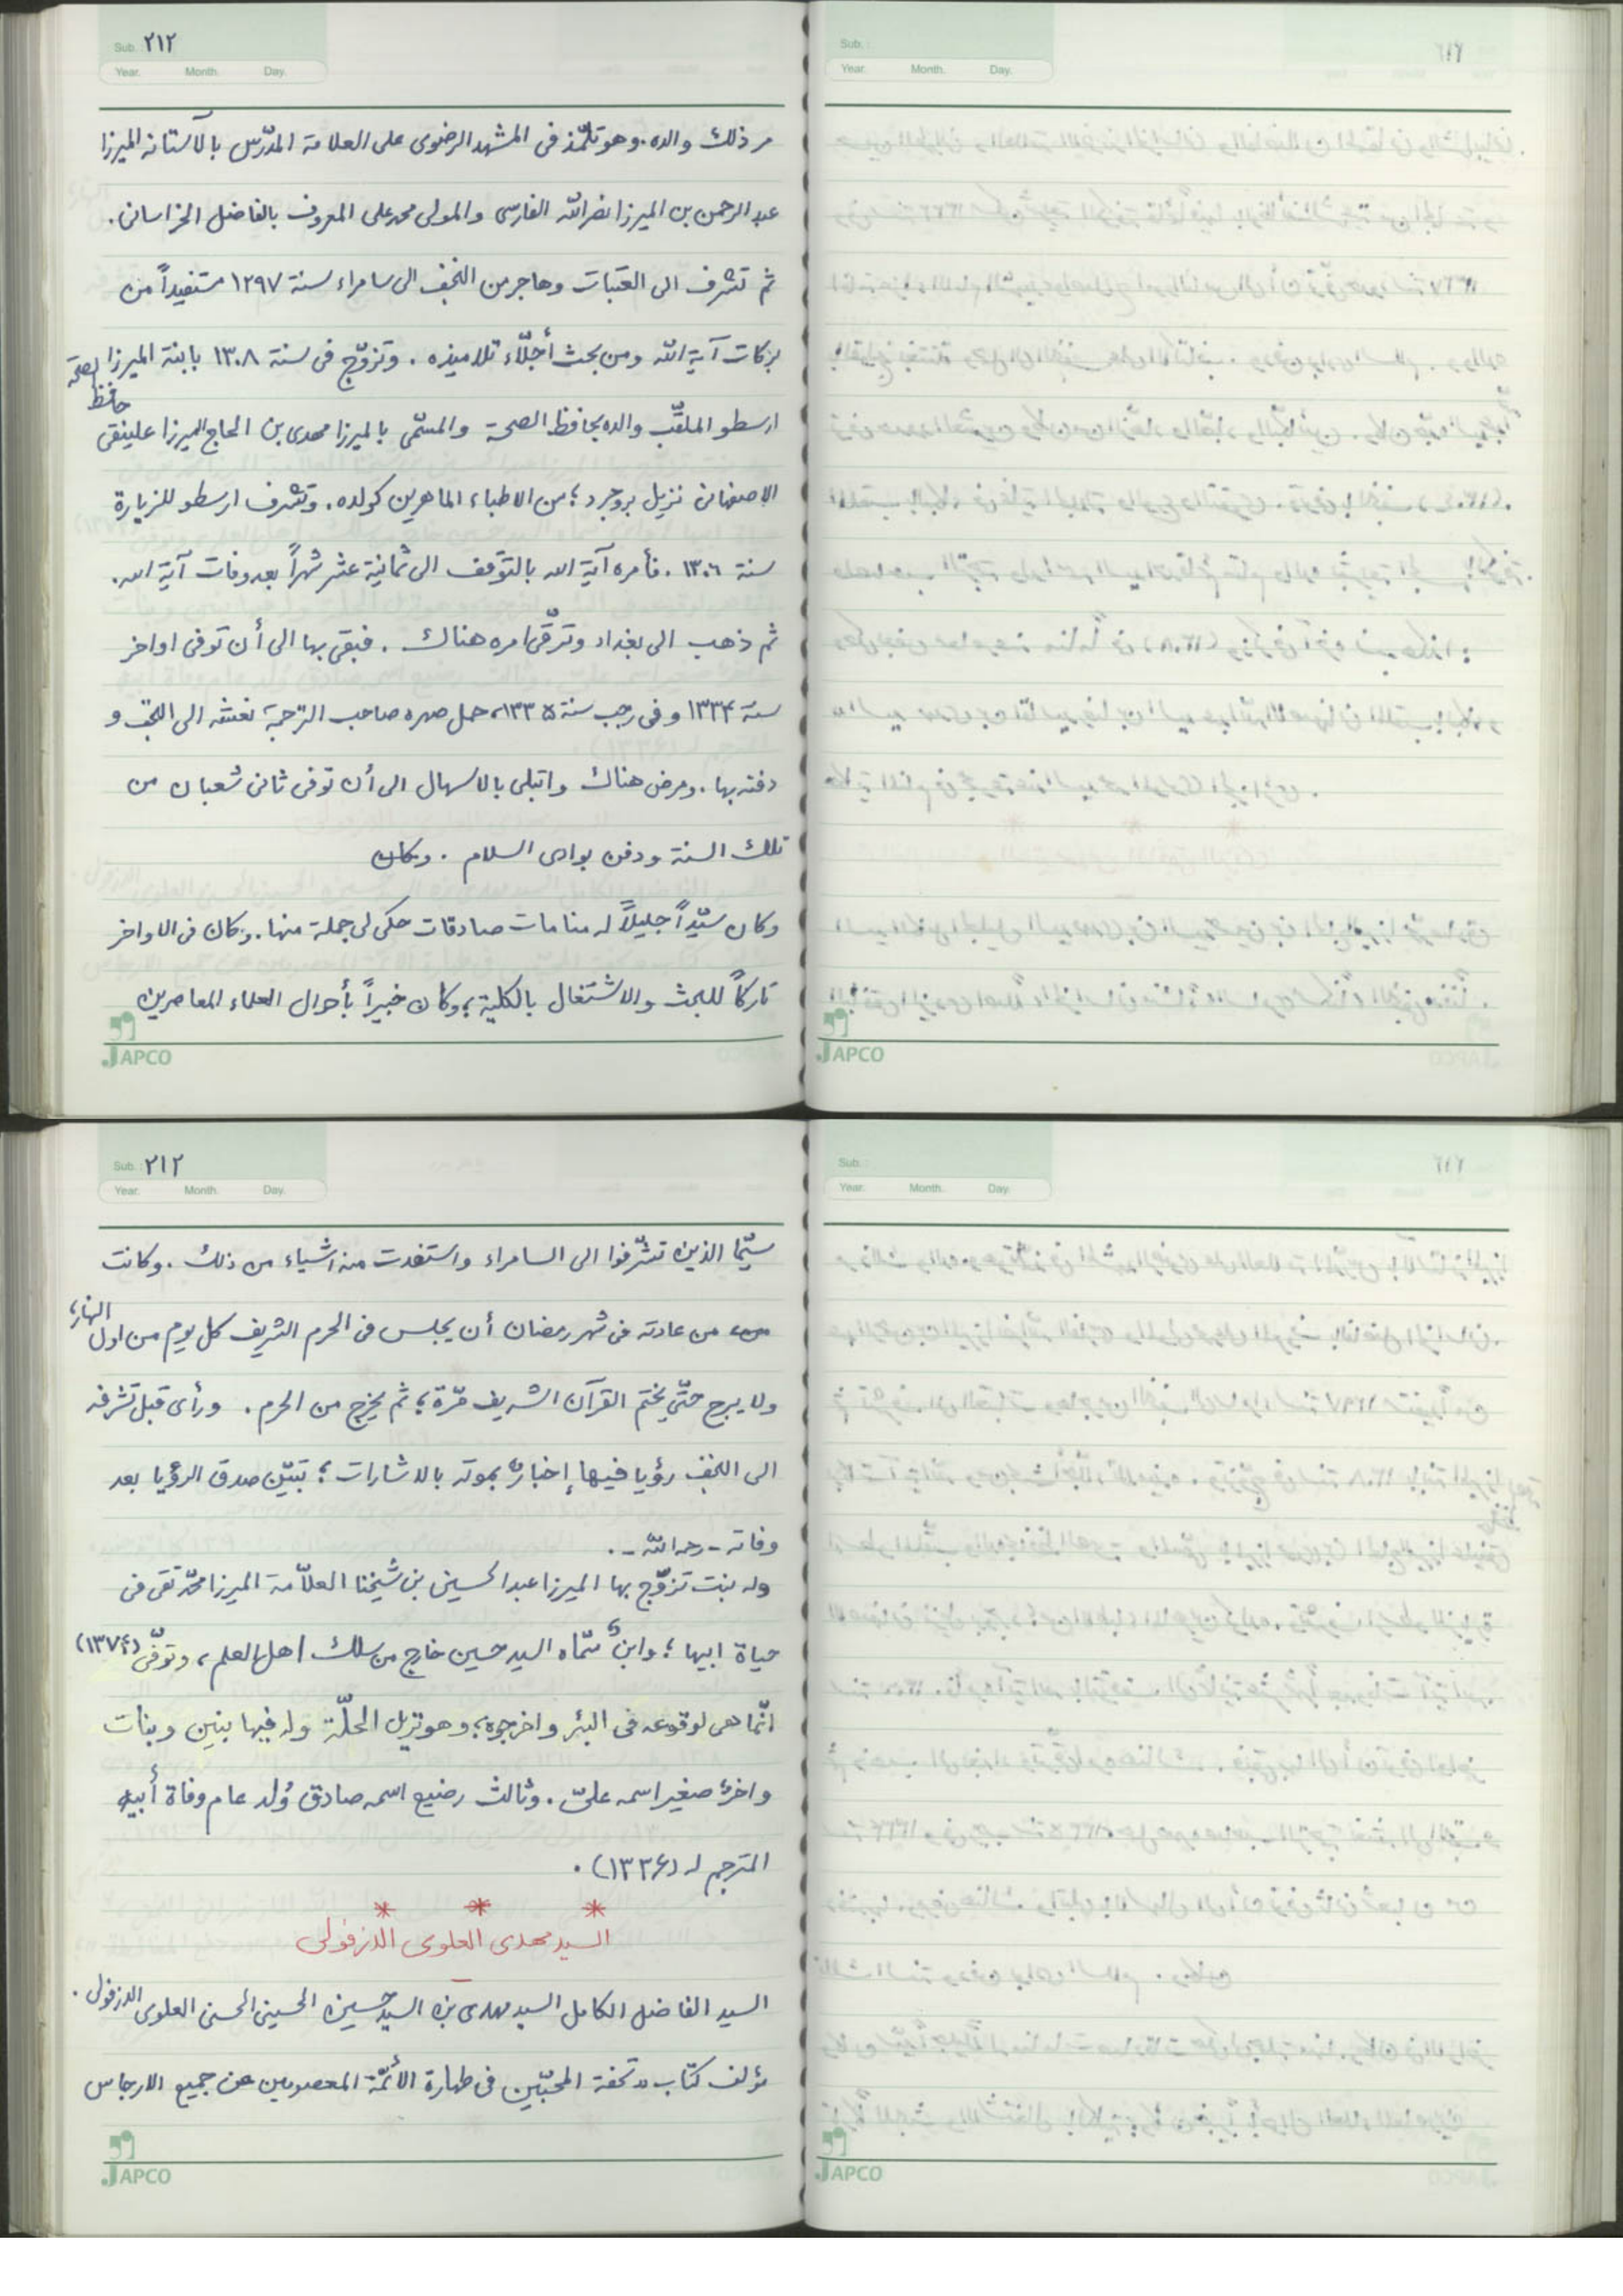 Sub. ٢١٢
Year. Month. Day.
مر ذلك والده. وهو تلمّذ فى المشهد الرضوى على العلامة المدّرس بالآستانه الميرزا
عبدالرحمن بن الميرزا نصرالله الفارسى والمولى محمدعلى المعروف بالفاضل الخراسانى.
ثم تشرف الى العتبات وهاجر من النجف الى سامراء سنة ١٢٩٧ مستفيداً من
بركات آية الله ومن بحث أجلّاء تلاميذه. وتزوّج فى سنة ١٣٠٨ بابنة الميرزا
حافظ الصحّة
ارسطو الملقّب والده بحافظ الصحة والمسمّى بالميرزا مهدى بن الحاج الميرزا علينقى
الاصفهانى نزيل بروجرد؛ من الاطباء الماهرين كولده. وتشرف ارسطو للزيارة
سنة ١٣٠٦. فأمره آية الله بالتوقف الى ثمانية عشر شهراً بعد وفات آية الله.
ثم ذهب الى بغداد وترقّى امره هناك. فبقى بها الى أن توفى اواخر
سنة ١٣٣٤ وفى رجب سنة ١٣٣٥، حمل صهره صاحب الترجمة نعشه الى النجف و
دفنه بها. ومرض هناك وابتلى بالاسهال الى أن توفى ثانى شعبان من
تلك السنة ودفن بوادى السلام. وكان
وكان سيّداً جليلاً له منامات صادقات حكى لى جملة منها. وكان فى الاواخر
تاركاً للبحث والاشتغال بالكلية؛ وكان خبيراً بأحوال العلماء المعاصرين
JAPCO
Sub.
Year. Month. Day.
JAPCO
Sub. ٢١٢
Year. Month. Day.
سيّما الذين تشرّفوا الى السامراء واستفدت منه اشياء من ذلك. وكانت
من عادته فى شهر رمضان أن يجلس فى الحرم الشريف كل يوم من اول النهار؛
ولا يبرح حتّى يختم القرآن الشريف مّرة؛ ثم يخرج من الحرم. ورأى قبل تشرفه
الى النجف رؤيا فيها إخبارٌ بموته بالاشارات؛ تبيّن صدق الرؤيا بعد
وفاته - رحمه الله -.
وله بنت تزوّج بها الميرزا عبدالحسين بن شيخنا العلاّمة الميرزا محمّد تقى فى
حياة ابيها؛ وابنٌ سمّاه السيد حسين خارج من سلك اهل العلم، وتوفّى (١٣٧٤)
انّما هى لوقوعه فى البئر واخرجوه؛ وهو نزيل الحلّة وله فيها بنين وبنات
واخرُ صغير اسمه علىّ. وثالث رضيع اسمه صادق وُلد عام وفاة أبيه
المترجم له (١٣٣٦).
* * *
السيد مهدى العلوى الدزفولى
السيد الفاضل الكامل السيد مهدى بن السيد حسين الحسينى الحسنى العلوى الدزفولى.
مؤلف كتاب «تحفة المحبّين فى طهارة الأئمّة المعصومين عن جميع الارجاس
JAPCO
Sub.
Year. Month. Day.
JAPCO